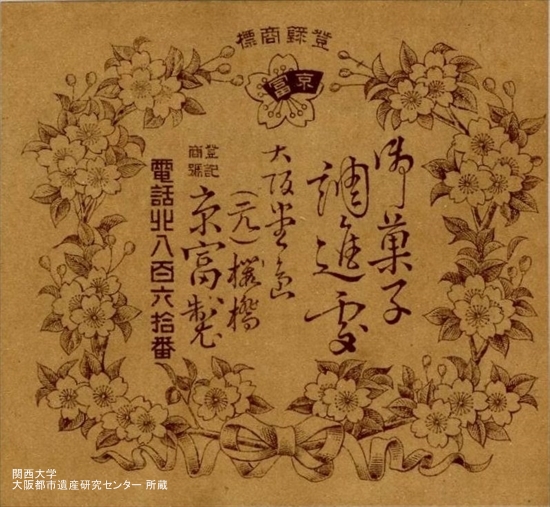 登録商標
京富
御菓子
調進処
大阪堂島
(元)桜橋
登記
商號
京富製
電話北八百六拾番
関西大学
大阪都市遺産研究センター 所蔵